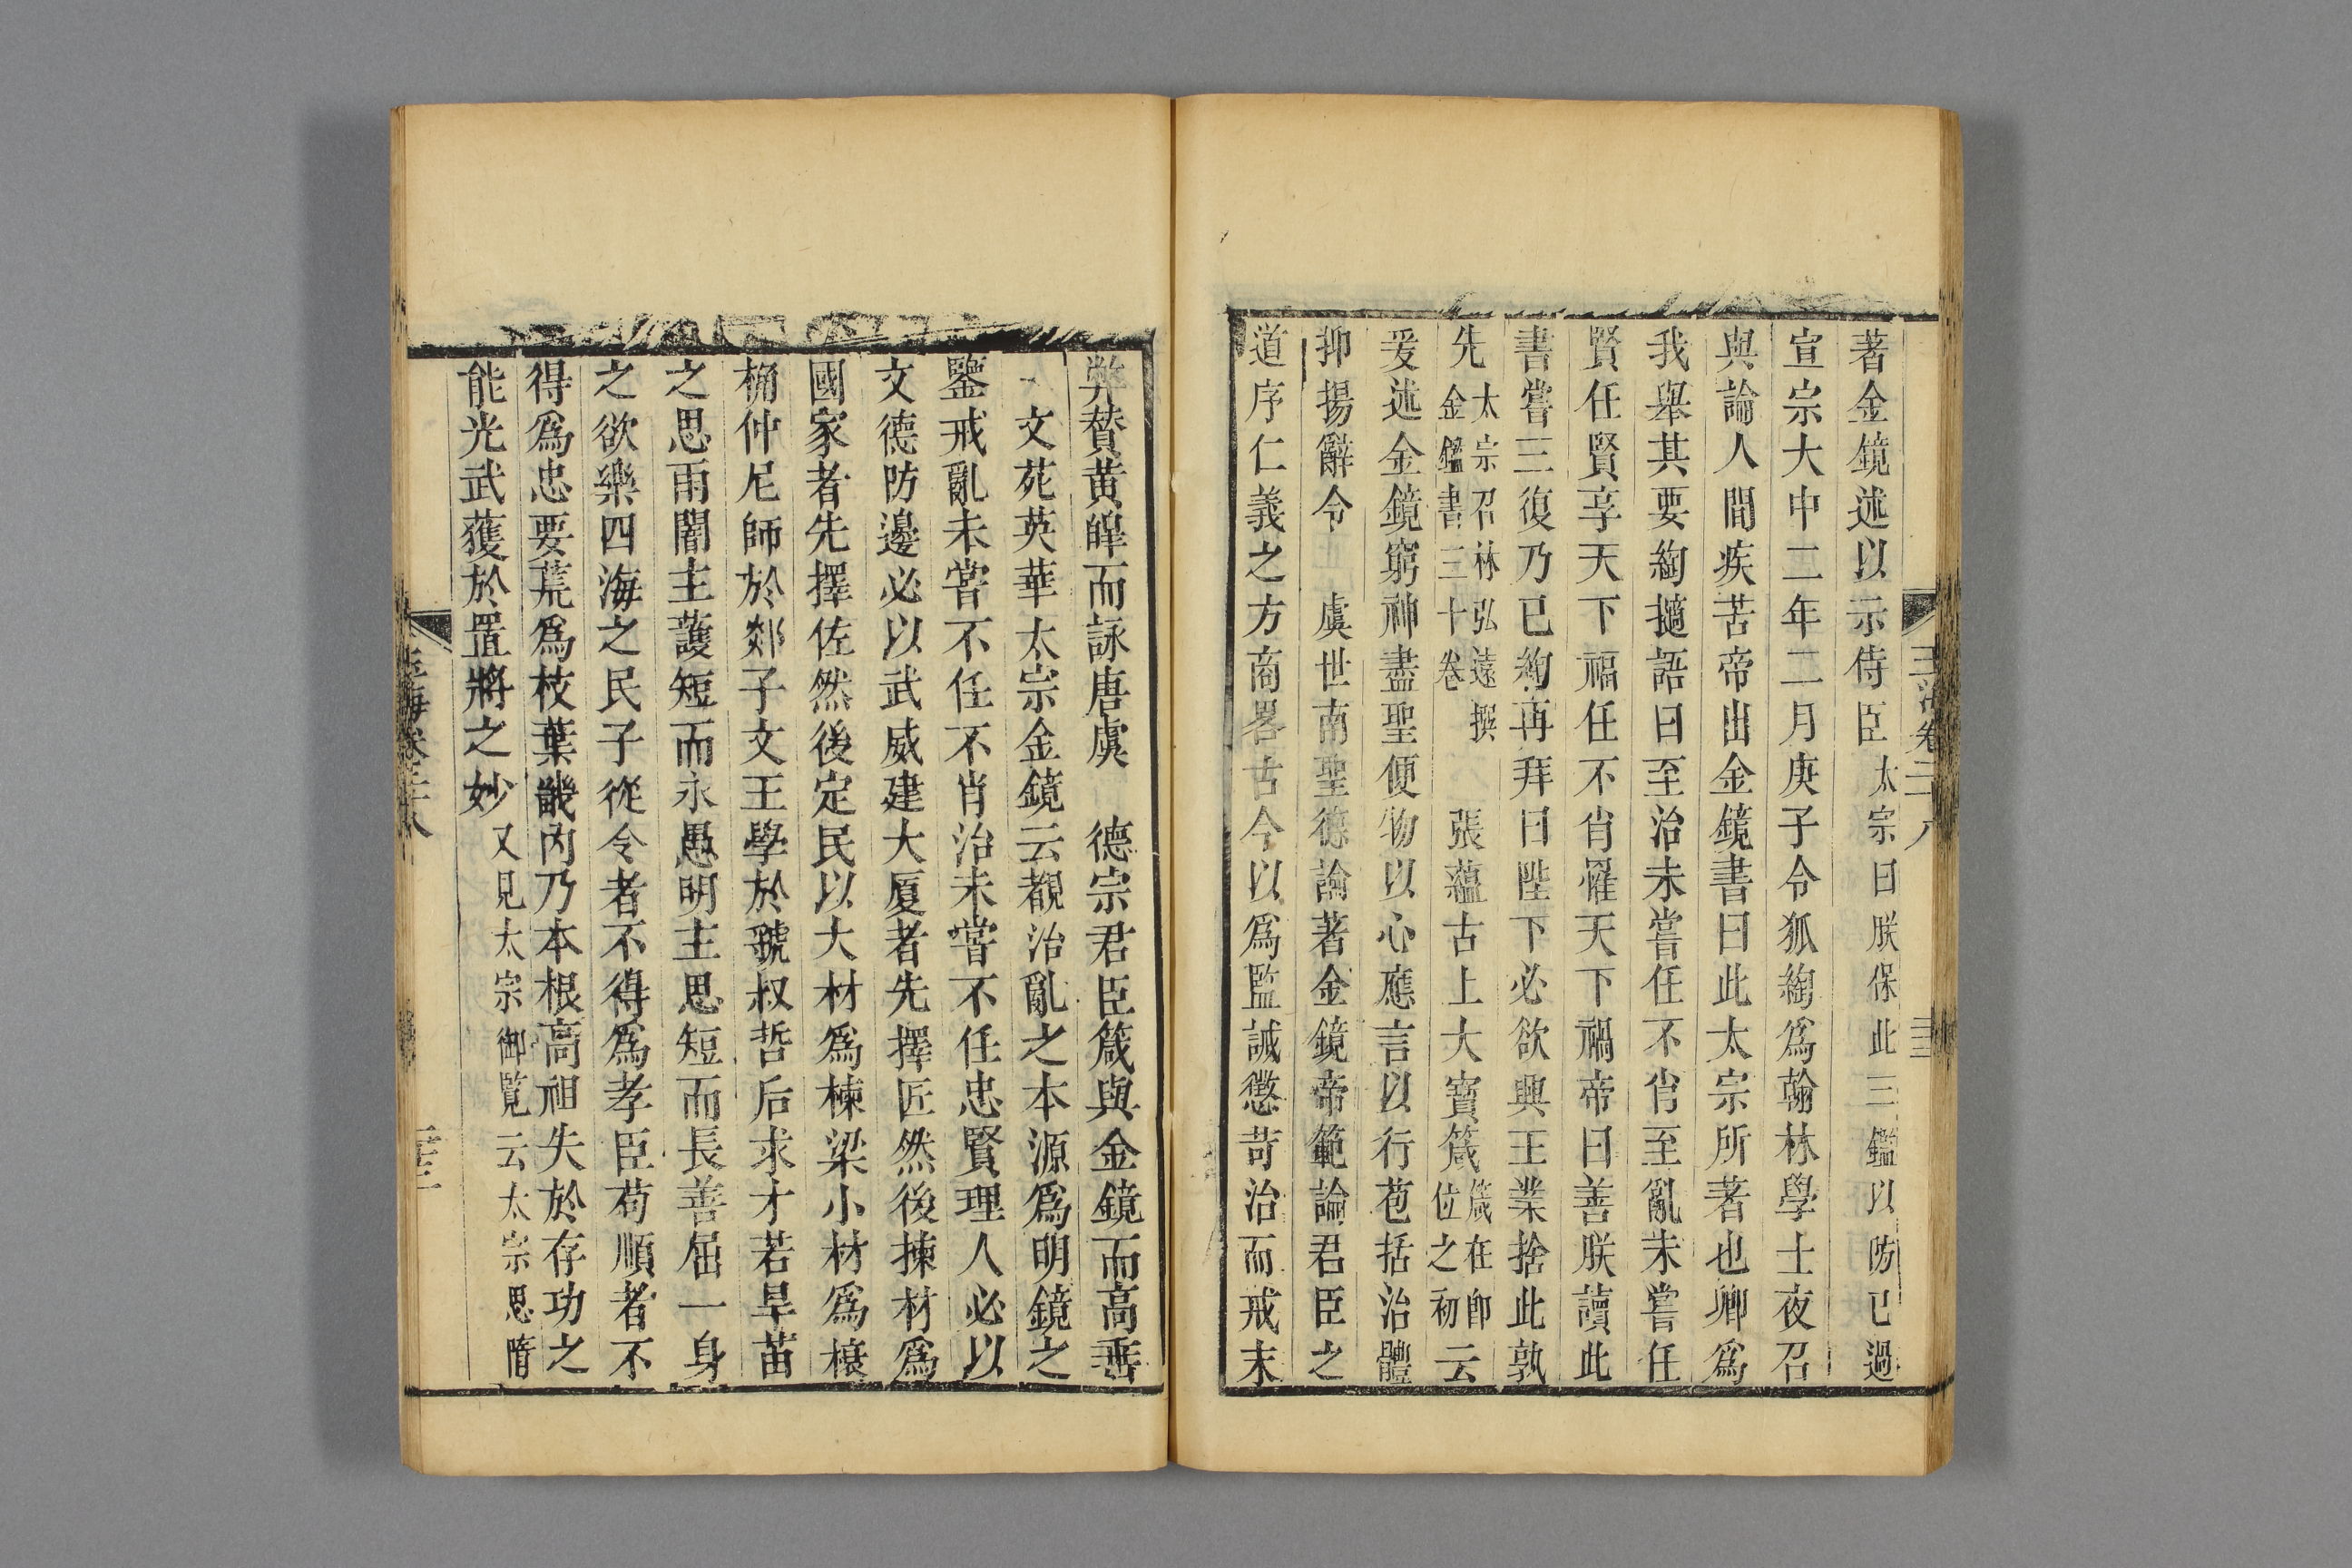 著金鏡述以示侍臣太宗曰朕保此三鑑以防已過
宣宗大中二年二月庚子令狐綯爲翰林學士夜召
與論人間疾苦帝出金鏡書曰此太宗所著也卿爲
我舉其要綯擿語曰至治未嘗任不肖至亂未嘗任
賢任賢享天下福任不肖罹天下禍帝曰善朕讀此
書嘗三復乃已綯再拜曰陛下必欲興王業捨此孰
先太宗召林弘遠撰金鑑書三十卷 張蘊古上大寶箴箴在卽位之初云
爰述金鏡窮神盡聖便物以心應言以行苞括治體
抑揚辭令 虞世南聖德論著金鏡帝範論君臣之
道序仁義之方商畧古今以爲監誡懲苛治而戒末
弊贊黄皥而詠唐虞 德宗君臣箴與金鏡而高垂
文苑英華太宗金鏡云覩治亂之本源爲明鏡之
鑒戒亂未嘗不任不肖治未嘗不任忠賢理人必以
文德防邊必以武威建大厦者先擇匠然後揀材爲
國家者先擇佐然後定民以大材爲棟梁小材爲榱
桷仲尼師於郯子文王學於虢叔哲后求才若旱苗
之思雨闇主護短而永愚明主思短而長善屈一身
之欲樂四海之民子從令者不得爲孝臣苟順者不
得爲忠要荒爲枝葉畿内乃本根高祖失於存功之
能光武獲於置將之妙又見太宗御覽云太宗思隋
玉海卷二十八